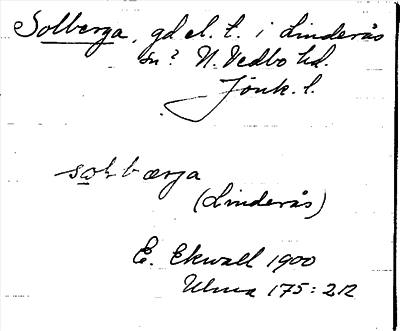 Solberga, gd el. t. i Linderås
sn? N. Vedbo hd.
Jönk. l.
solbærga
(Linderås)
E. Ekwall 1900
Ulma 175:212